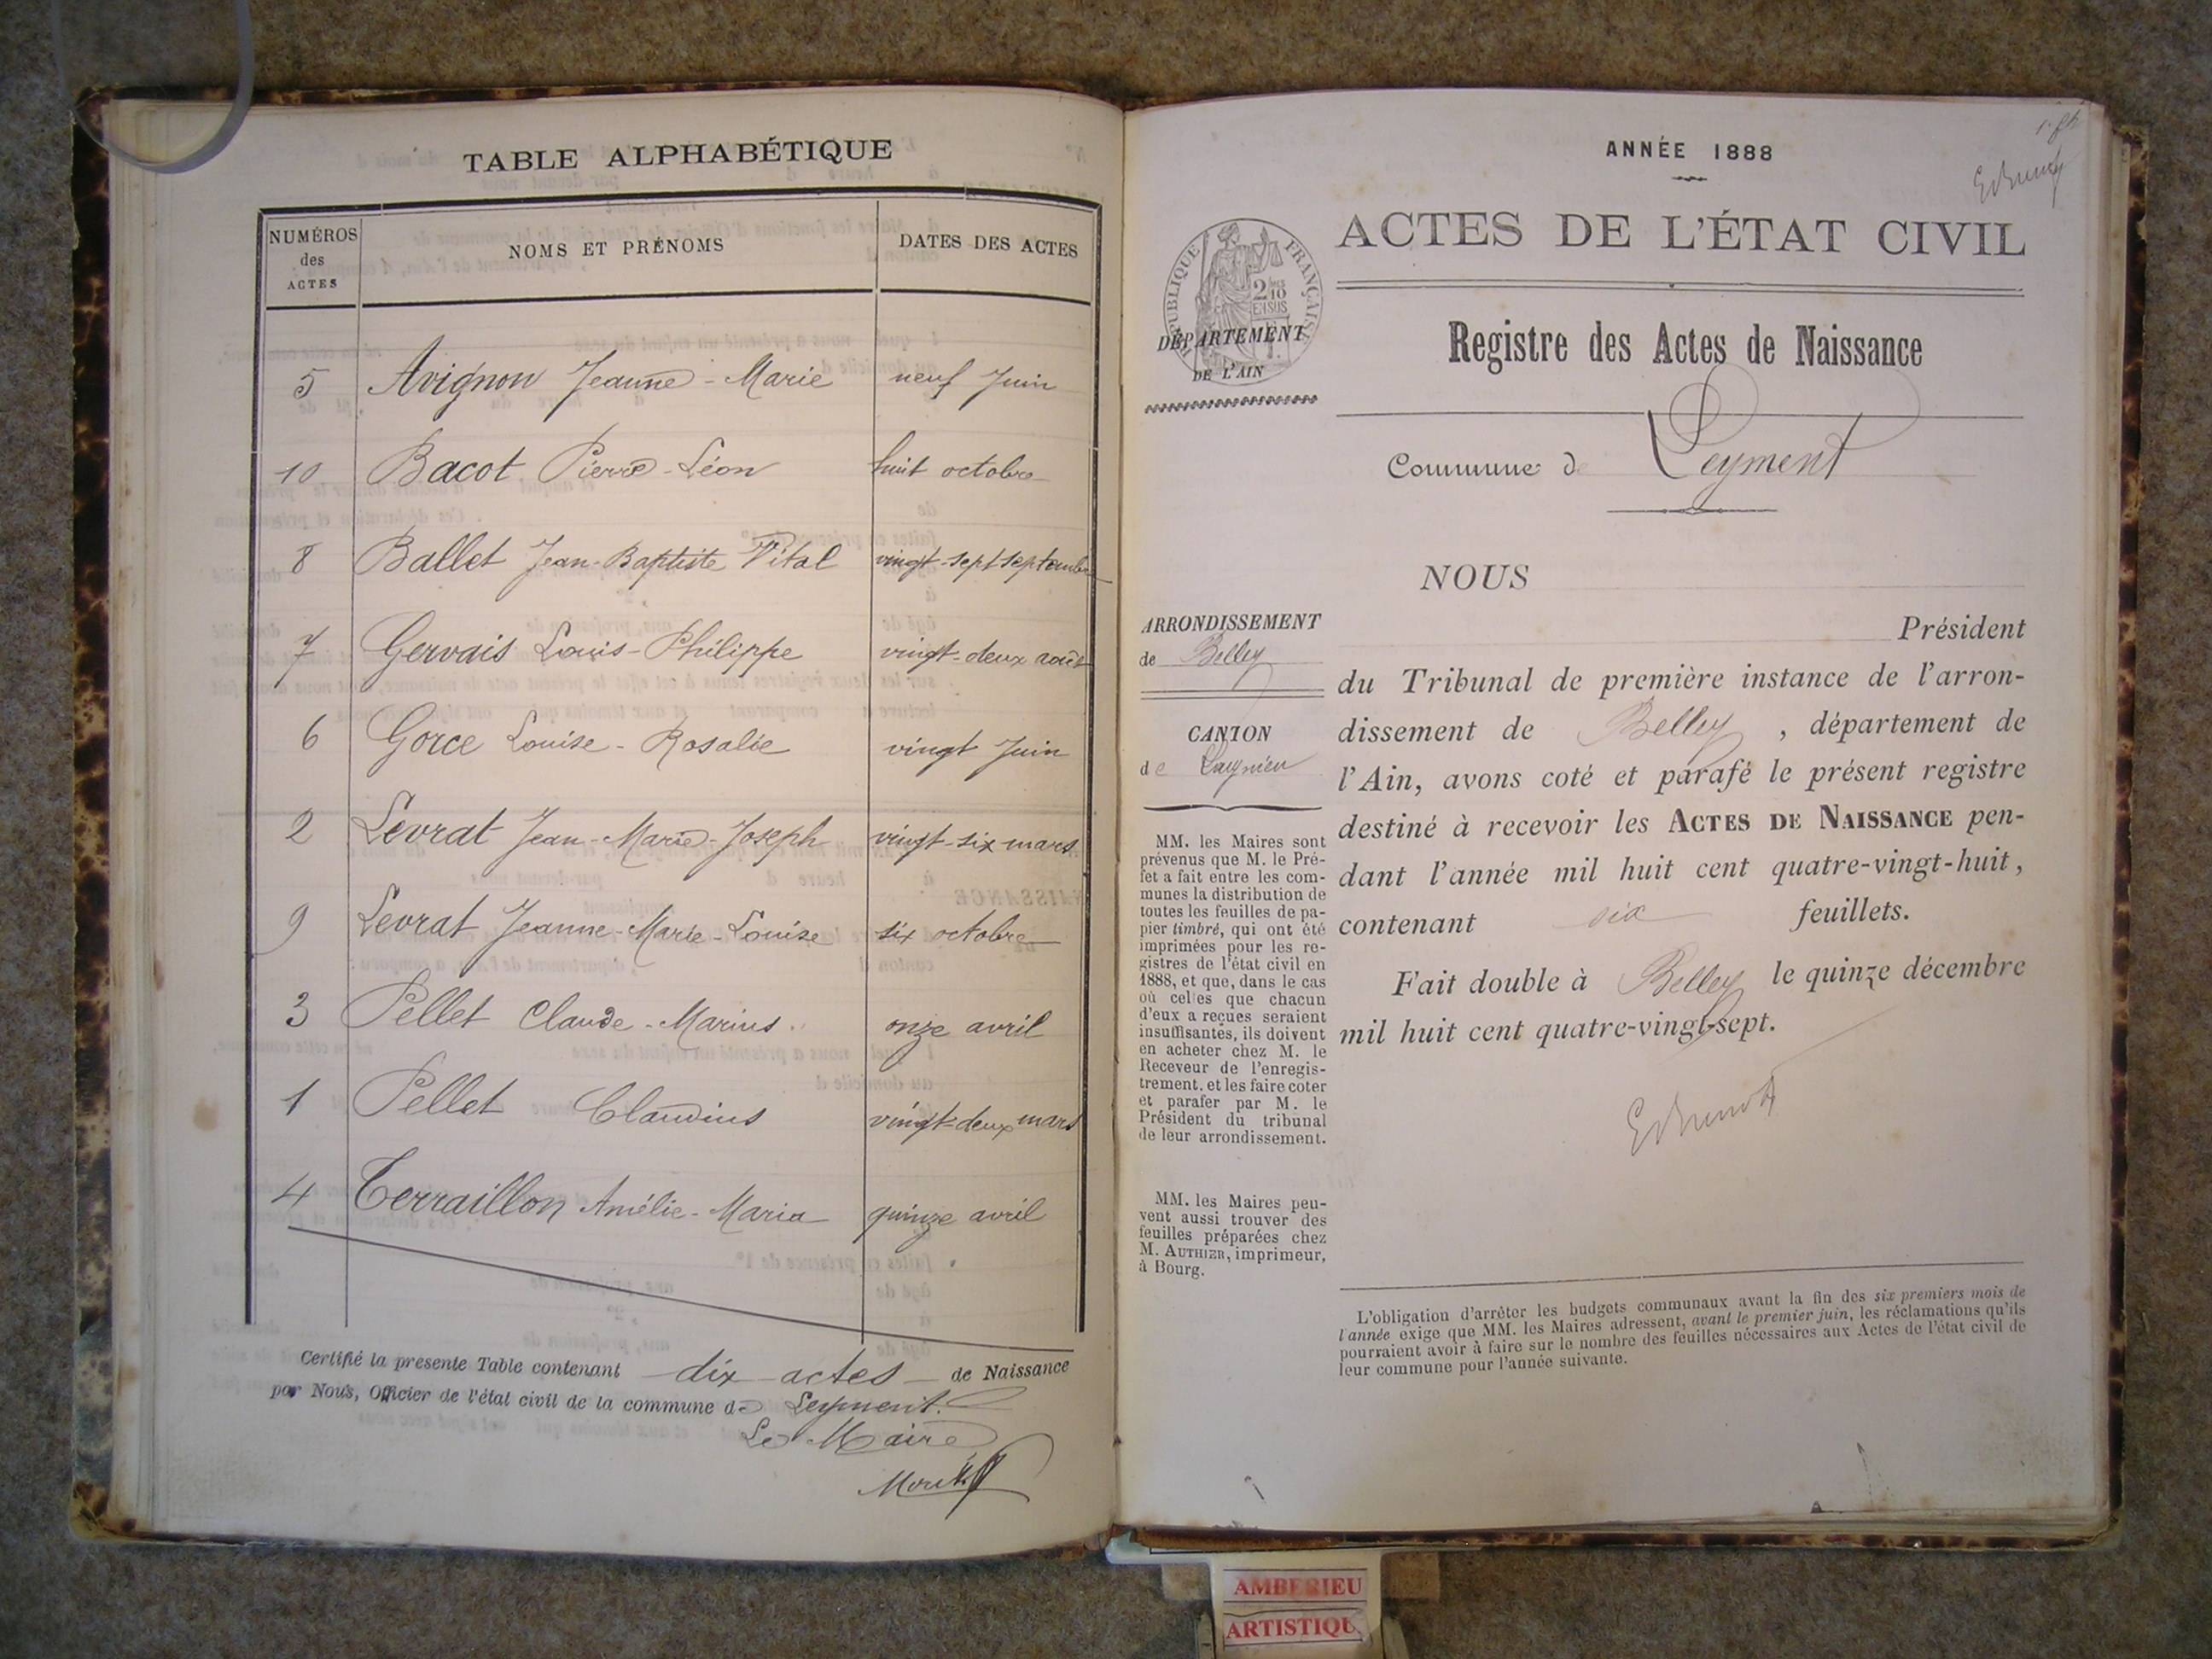 TABLE ALPHABÉTIQUE
NUMÉROS des ACTES
NOMS ET PRÉNOMS
DATES DES ACTES
5 Avignon Jeanne-Marie neuf Juin
10 Bacot Pierre-Léon huit octobre
8 Ballet Jean-Baptiste Vital vingt-sept septembre
7 Gervais Louis-Philippe vingt-deux août
6 Gorce Louise-Rosalie vingt Juin
2 Levrat Jean-Marie-Joseph vingt-six mars
9 Levrat Jeanne-Marie-Louise six octobre
3 Pellet Claude-Marius onze avril
1 Pellet Claudius vingt-deux mars
4 Terraillon Amélie-Maria quinze avril
Certifié la présente Table contenant dix actes de Naissance
par Nous, Officier de l'état civil de la commune de Leyment.
Le Maire
ANNÉE 1888
ACTES DE L'ÉTAT CIVIL
RÉPUBLIQUE FRANÇAISE
DÉPARTEMENT
DE L'AIN
Registre des Actes de Naissance
Commune de Leyment
NOUS
Président
du Tribunal de première instance de l'arron-
dissement de Belley, département de
l'Ain, avons coté et parafé le présent registre
destiné à recevoir les ACTES DE NAISSANCE pen-
dant l'année mil huit cent quatre-vingt-huit,
contenant six feuillets.
Fait double à Belley le quinze décembre
mil huit cent quatre-vingt-sept.
ARRONDISSEMENT
de Belley
CANTON
de Lagnieu
MM. les Maires sont
prévenus que M. le Pré-
fet a fait entre les com-
munes la distribution de
toutes les feuilles de pa-
pier timbré, qui ont été
imprimées pour les re-
gistres de l'état civil en
1888, et que, dans le cas
où celles que chacun
d'eux a reçues seraient
insuffisantes, ils doivent
en acheter chez M. le
Receveur de l'enregis-
trement, et les faire coter
et parafer par M. le
Président du tribunal
de leur arrondissement.
MM. les Maires peu-
vent aussi trouver des
feuilles préparées chez
M. AUTHIER, imprimeur,
à Bourg.
L'obligation d'arrêter les budgets communaux avant la fin des six premiers mois de
l'année exige que MM. les Maires adressent, avant le premier juin, les réclamations qu'ils
pourraient avoir à faire sur le nombre des feuilles nécessaires aux Actes de l'état civil de
leur commune pour l'année suivante.
AMBERIEU
ARTISTIQU